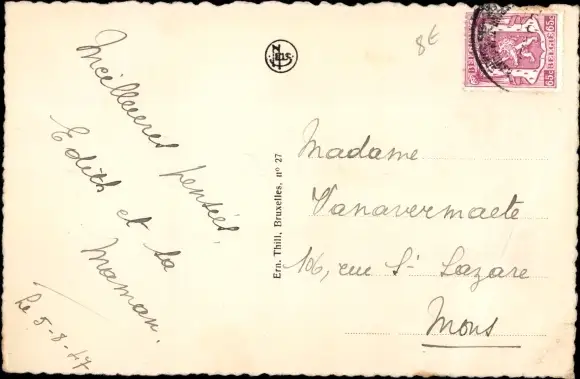 Meilleures pensées,
Edith et ta
Maman.
Le 5-8-47
NELS
Ern. Thill, Bruxelles, nº 27
8€
BELGIE
65c
65c
Madame
Vanavermaete
106, rue St Lazare
Mons